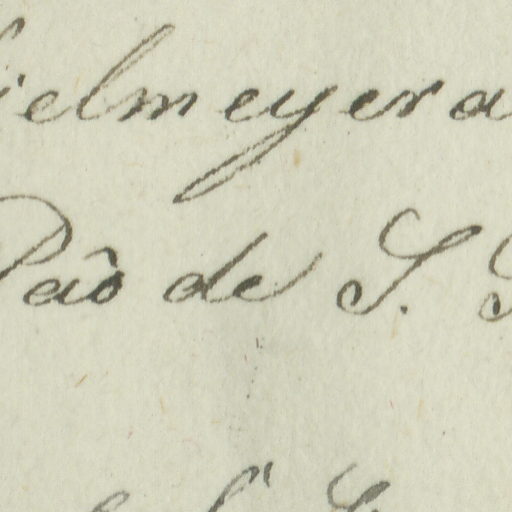 ielmeyera
Paô de S.